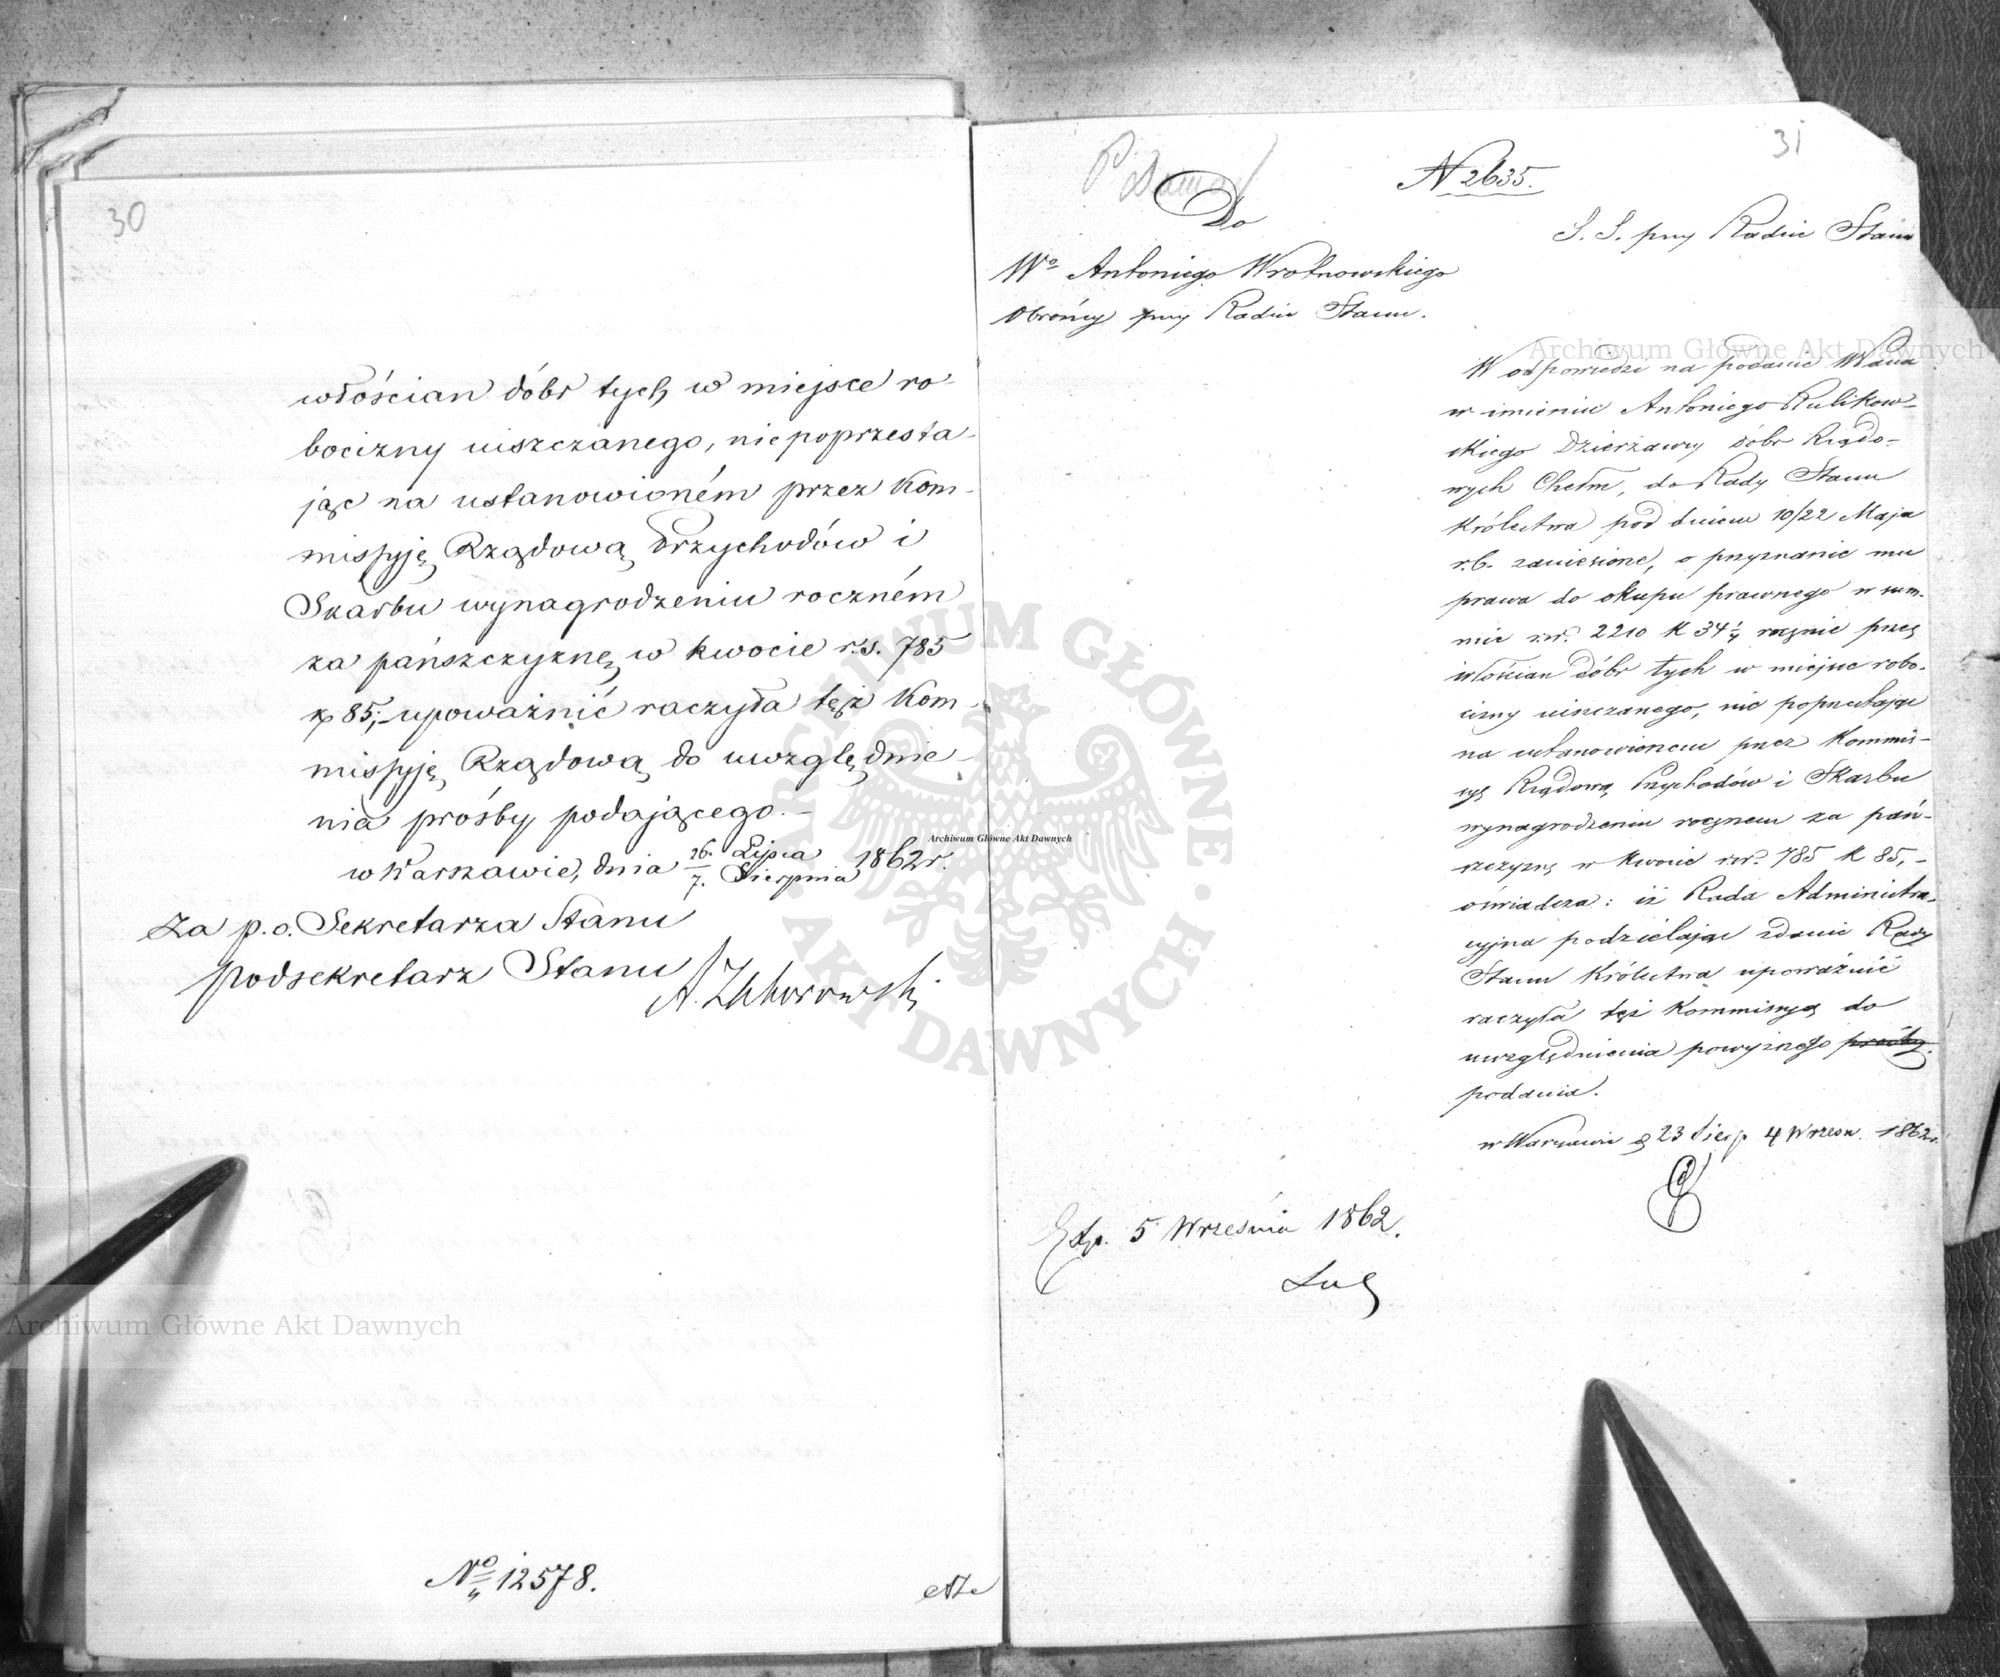 30
włościan dóbr tych, w miejsce ro-
bocizny uiszczanego, niepoprzesta-
jąc na ustanowioném przez Kom-
missyję Rządową Przychodów i
Skarbu wynagrodzeniu roczném
za pańszczyznę, w kwocie r.s. 785
k 85,- upoważnić raczyła tęż Kom-
missyję Rządową do uwzględnie-
nia prośby podającego.-
w Warszawie, dnia 26. Lipca / 7. Sierpnia 1862 r.
za p.o. Sekretarza Stanu
Podsekretarz Stanu
No 12578.
31
N 2635.
S. S. przy Radzie Stanu
Do
Wo Antoniego Wrotnowskiego
Obrońcy przy Radzie Stanu.
W odpowiedzi na podanie WPana
w imieniu Antoniego Rulikow-
skiego Dzierżawcy dóbr Rządo-
wych Chełm, do Rady Stanu
Królestwa pod dniem 10/22 Maja
r.b. zaniesione, o przyznanie mu
prawa do okupu prawnego w sum-
mie rsr. 2210 k 34 1/4 rocznie przez
włościan dóbr tych w miejsce robo-
cizny uiszczanego, nie poprzestając
na ustanowionem przez Kommis-
syę Rządową Przychodów i Skarbu
wynagrodzeniu rocznem za pań-
szczyznę w kwocie rsr. 785 k 85,-
oświadcza: iż Rada Administra-
cyjna podzielając zdanie Rady
Stanu Królestwa upoważnić
raczyła tęż Kommissyą do
uwzględnienia powyższego prośby.
podania.
w Warszawie d 23 Sierp. 4 Wrześn. 1862 r.
Exp. 5 Września 1862.
Archiwum Główne Akt Dawnych
Archiwum Główne Akt Dawnych
Archiwum Główne Akt Dawnych
ARCHIWUM GŁÓWNE
AKT DAWNYCH